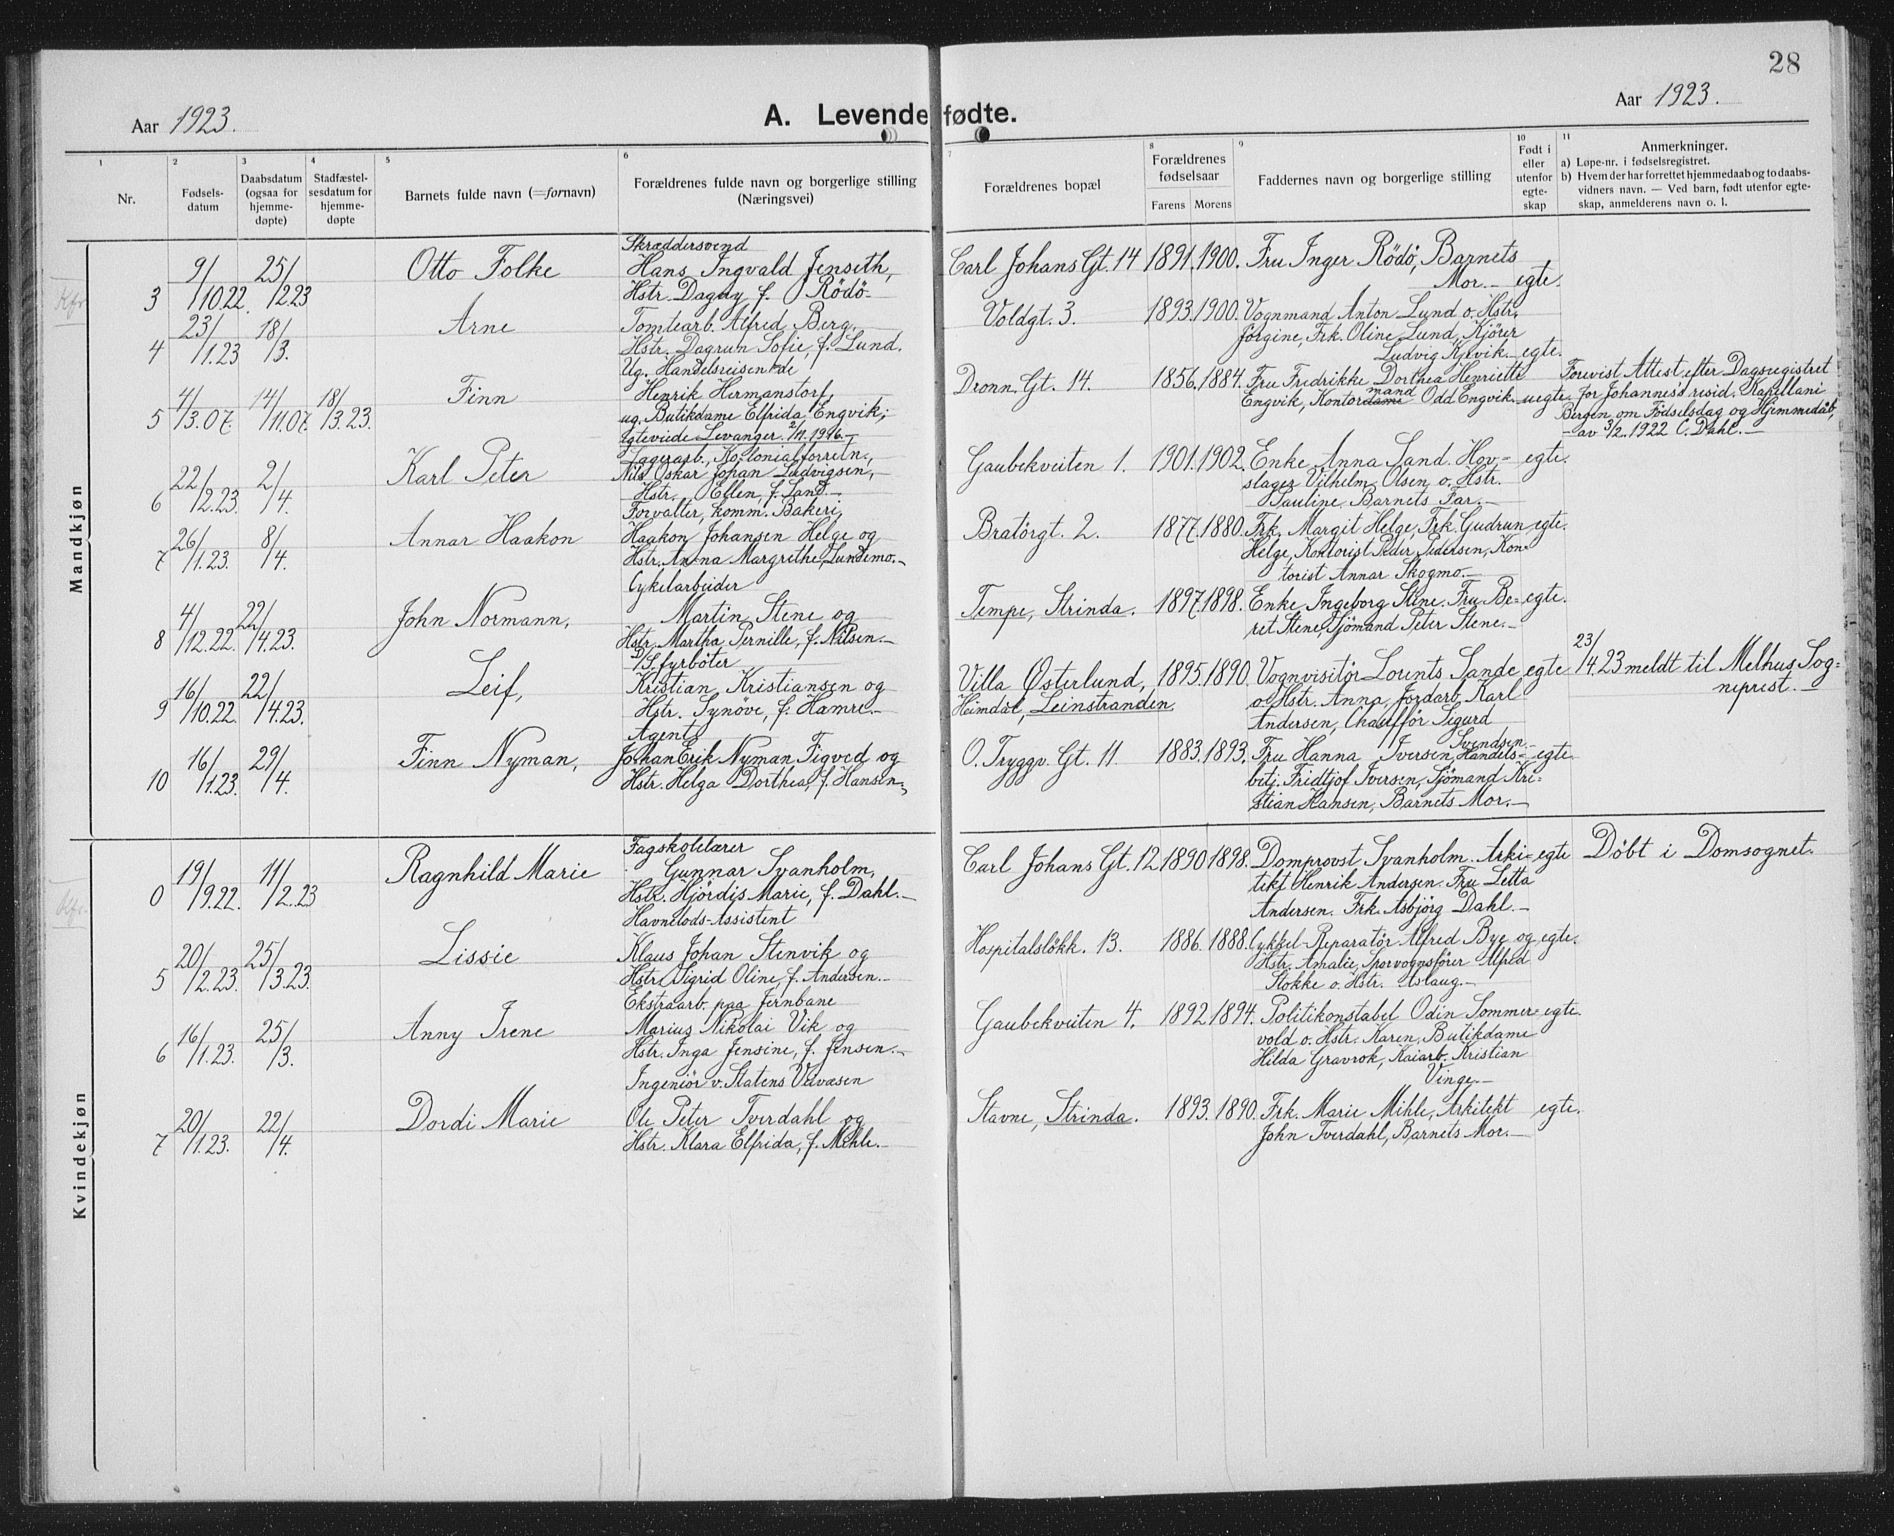 28
Aar 1923.
A. Levendefødte.
Aar 1923.
1
2
3
4
5
6
7
8
9
10
11
Nr.
Fødsels-
datum
Daabsdatum
(ogsaa for
hjemme-
døpte)
Stadfæstel-
sesdatum for
hjemme-
døpte
Barnets fulde navn (=fornavn)
Forældrenes fulde navn og borgerlige stilling
(Næringsvei)
Forældrenes bopæl
Forældrenes
fødselsaar
Farens Morens
Faddernes navn og borgerlige stilling
Født i
eller
utenfor
egte-
skap
Anmerkninger.
a) Løpe-nr. i fødselsregistret.
b) Hvem der har forrettet hjemmedaab og to daabs-
vidners navn. — Ved barn, født utenfor egte-
skap, anmelderens navn o. l.
Mandkjøn
Kfr.
3
9/10.22.
25/2.23
Otto Folke
Skræddersvend
Hans Ingvald Jenseth,
Hstr. Dagny f. Rödö.
Carl Johans Gt. 14
1891.
1900.
Fru Inger Rödö, Barnets
Mor.—
egte.
4
23/1.23
18/3.
Arne
Tomtearb. Alfred Berg,
Hstr. Dagrun Sofie, f. Lund.
Voldgt. 3.
1893.
1900.
Vognmand Anton Lund o. Hstr.
Jörgine, Frk. Oline Lund, Kjörer
Ludvig Kjelvik.—
egte.
5
4/3.07.
14/11.07.
18/3.23.
Finn
Ug. Handelsreisende
Henrik Hermanstorf,
ug. Butikdame Elfrida Engvik;
egteviede Levanger. 2/11.1916.—
Dronn. Gt. 14.
1856.
1884.
Fru Fredrikke Dorthea Henriette
Engvik, Kontordame mand Odd Engvik.—
uegte
Forevist Attest efter Dagsregistret
for Johannes's resid. Kapellani
Bergen om Födselsdag og Hjemmedåb,
—av 3/2.1922 C. Dahl.—
6
22/2.23.
2/4.
Karl Peter
Lagerarb., Kolonialforretn.,
Nils Oskar Johan Ludvigsen,
Hstr. Ellen f. Sand.—
Gaubekveiten 1.
1901.
1902.
Enke Anna Sand. Hov-
slager Vilhelm Olsen o. Hstr.
Pauline, Barnets Far.—
egte.
7
26/1.23.
8/4.
Annar Haakon
Forvalter, komm. Bakeri,
Haakon Johansen Helge og
Hstr. Anna Margrethe, Lundemo.—
Bratörgt. 2.
1877.
1880.
Frk. Margit Helge, Frk. Gudrun
Helge, Kontorist Peder Pedersen, Kon-
torist Annar Skogmo.—
egte.
8
4/12.22.
22/4.23.
John Normann,
Cykelarbeider
Martin Stene og
Hstr. Martha Pernille, f. Nilsen.—
Tempe, Strinda.
1897.
1898.
Enke Ingeborg Stene. Fru Be-
ret Stene, Sjömand Peter Stene.—
egte.
9
16/10.22.
22/4.23.
Leif,
D/S. fyrböter
Kristian Kristiansen og
Hstr. Synöve, f. Hamre.—
Villa Østerlund,
Heimdal, Leinstranden.
1895.
1890.
Vognvisitör Lorents Sande
o. Hstr. Anna, Jordarb. Karl
Andersen, Chaufför Sigurd
Svendsen.—
egte
23/4.23 meldt til Melhus Sog=
neprest.—
10
16/1.23.
29/4.
Finn Nyman,
Agent
Johan Erik Nyman Figved og
Hstr. Helga Dorthea, f. Hansen.—
O. Tryggv. Gt. 11
1883.
1893.
Fru Hanna Iversen, Handels=
betj. Fridtjof Iversen, Sjömand Kri=
stian Hansen, Barnets Mor.—
egte.
Kvindekjøn
Kfr.
0
19/9.22.
11/2.23
Ragnhild Marie
Fagskolelærer
Gunnar Svanholm,
Hstr. Hjördis Marie, f. Dahl.—
Carl Johans Gt. 12
1890
1898.
Domprovst Svanholm. Arki-
tekt Henrik Andersen. Fru Letta
Andersen. Frk. Asbjörg Dahl.—
egte
Döbt i Domsognet.
5
20/2.23.
25/3.23.
Lissie
Havnelods-Assistent
Klaus Johan Stenvik og
Hstr. Sigrid Oline, f. Andersen.—
Hospitalslökk. 13.
1886.
1888.
Cykkel-Reparatör Alfred Bye og
Hstr. Amalie, Sporvognsförer Alfred
Stokke o. Hstr. Aslaug.—
egte.
6
16/1.23.
25/3.
Anny Irene
Ekstraarb. paa Jernbane
Marius Nikolai Vik og
Hstr. Inga Jensine, f. Jensen.—
Gaubekveiten 4.
1892.
1894.
Politikonstabel Odin Sommer-
vold o. Hstr. Karen, Butikdame
Hilda Gravrok, Kaiarb. Kristian
Vinge.—
egte.
7
20/1.23.
22/4.
Dordi Marie
Ingeniör v. Statens Veivæsen
Ole Peter Tverdahl og
Hstr. Klara Elfrida, f. Mehle.—
Stavne, Strinda.
1893.
1890.
Frk. Marie Mihle, Arkitekt
John Tverdahl, Barnets Mor.—
egte.